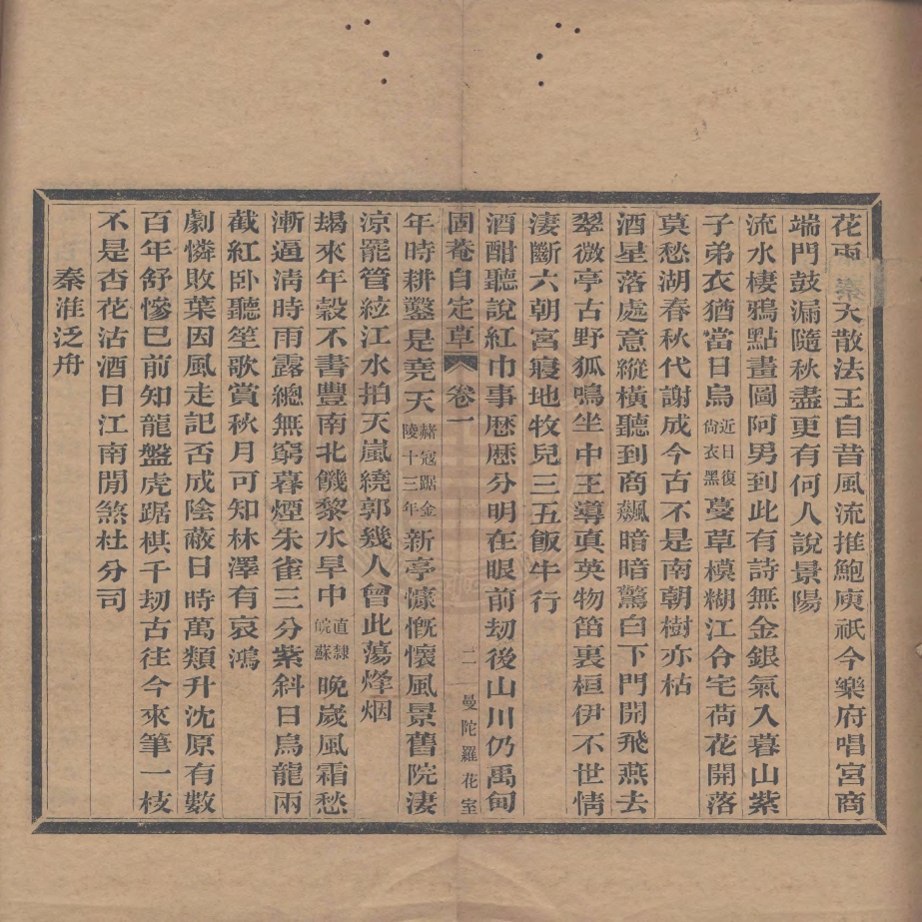 花雨大散法王自昔風流推鮑庾祇今樂府唱宮商
端門鼓漏隨秋盡更有何人說景陽
流水棲鴉點畫圖阿男到此有詩無金銀氣入暮山紫
子弟衣猶當日烏近日復尙衣黑蔓草模糊江令宅荷花開落
莫愁湖春秋代謝成今古不是南朝樹亦枯
酒星落處意縱橫聽到商飇暗暗驚白下門開飛燕去
翠微亭古野狐鳴坐中王導眞英物笛裏桓伊不世情
淒斷六朝宮寢地牧兒三五飯牛行
酒酣聽說紅巾事歷歷分明在眼前劫後山川仍禹甸
固菴自定草 卷一 二 曼陀羅花室
年時耕鑿是堯天赭冠踞金陵十三年新亭慷慨懷風景舊院淒
涼罷管絃江水拍天嵐繞郭幾人曾此蕩烽烟
朅來年穀不書豐南北饑黎水旱中直隸皖蘇晚歲風霜愁
漸逼淸時雨露總無窮暮煙朱雀三分紫斜日烏龍兩
截紅卧聽笙歌賞秋月可知林澤有哀鴻
劇憐敗葉因風走記否成陰蔽日時萬類升沈原有數
百年舒慘已前知龍盤虎踞棋千刼古往今來筆一枝
不是杏花沽酒日江南閒煞杜分司
秦淮泛舟